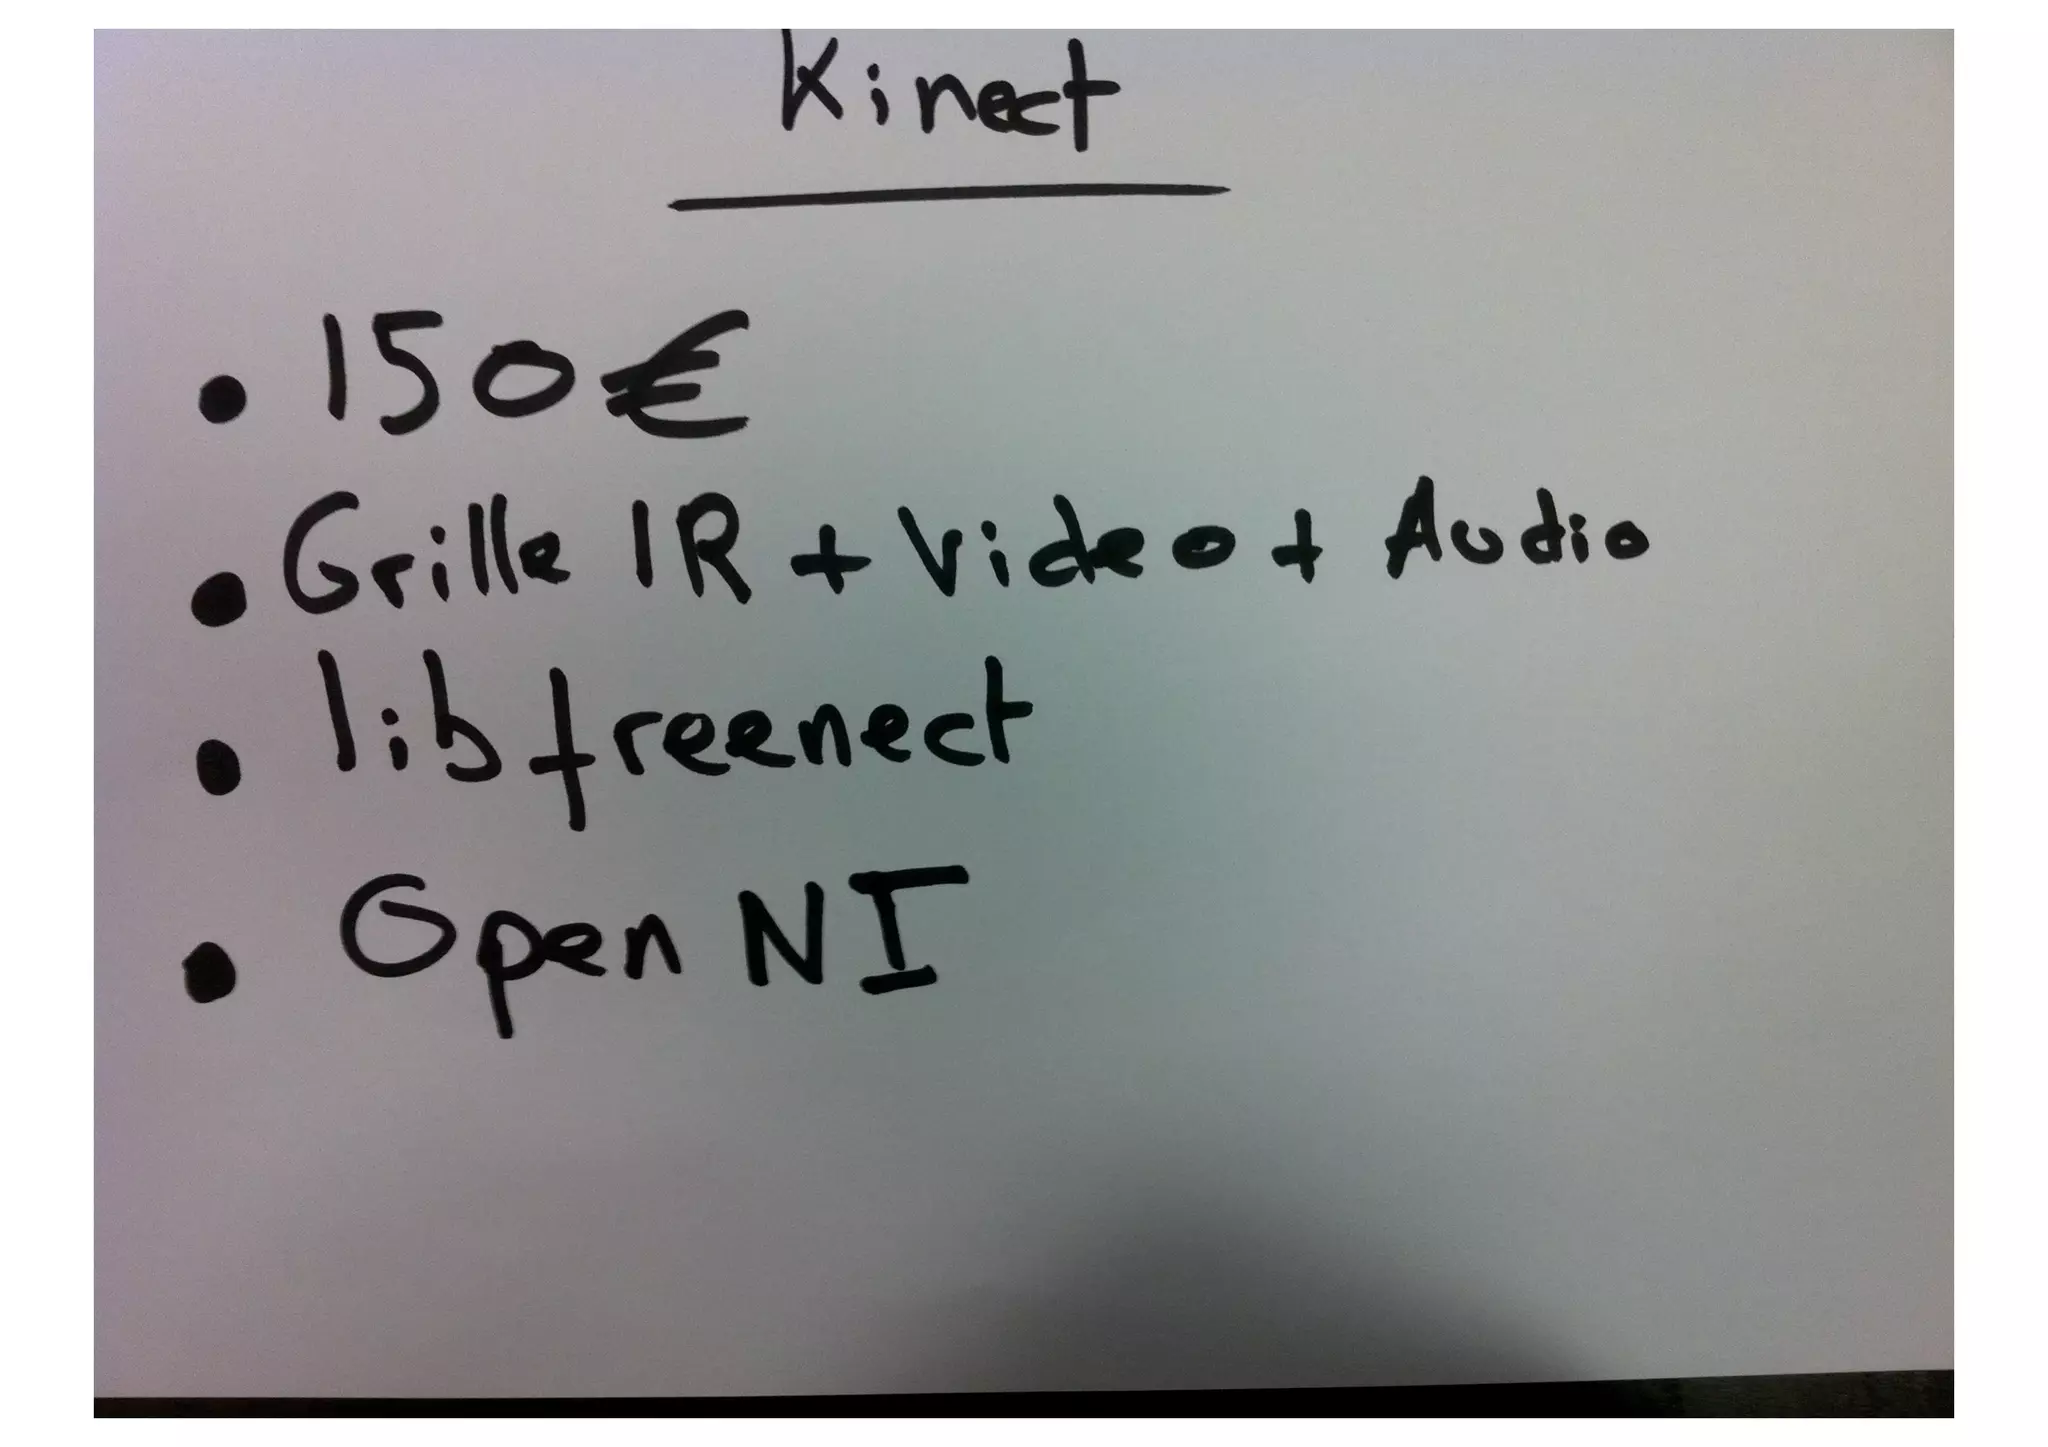 Kinect
• 150€
• Grille IR + Video + Audio
• libfreenect
• Open NI